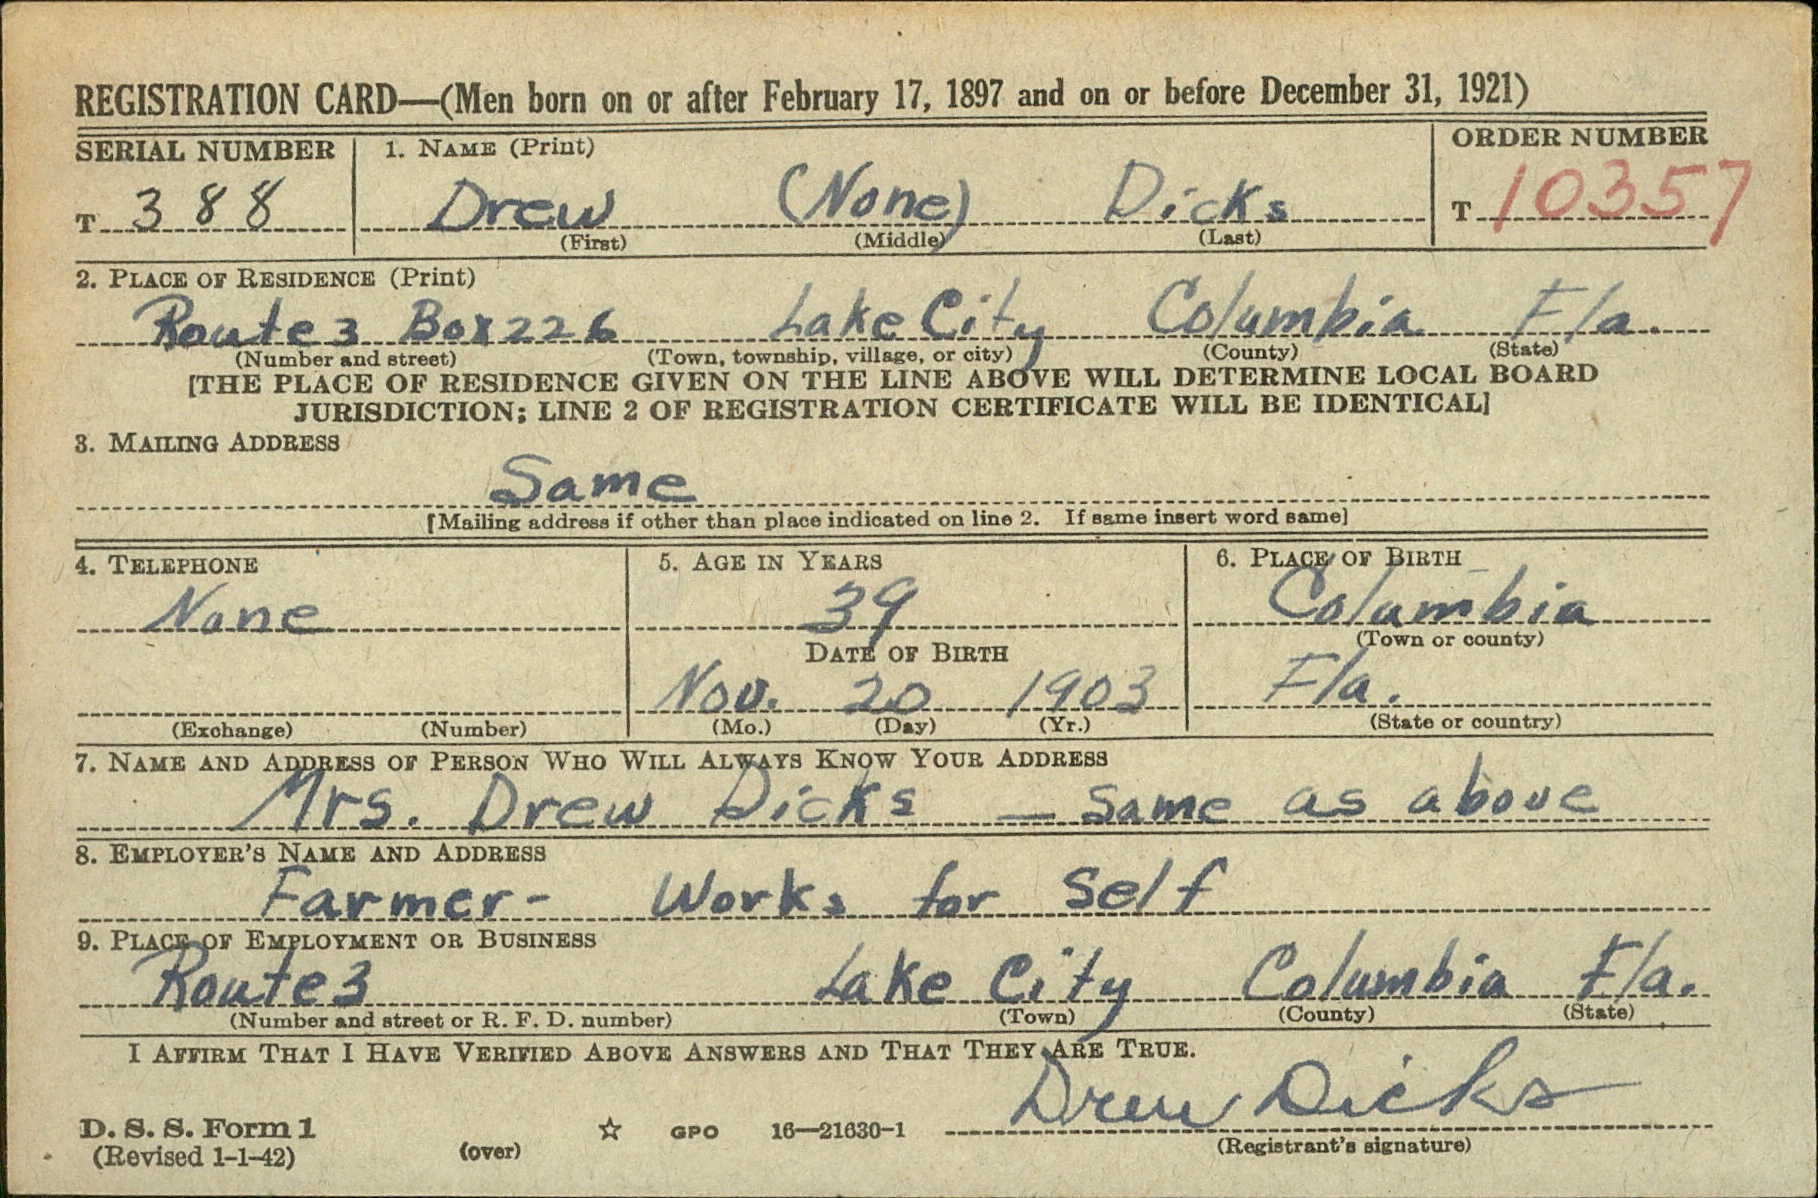 REGISTRATION CARD—(Men born on or after February 17, 1897 and on or before December 31, 1921)
SERIAL NUMBER 1. NAME (Print) ORDER NUMBER
T 388 Drew (None) Dicks T 10357
(First) (Middle) (Last)
2. PLACE OF RESIDENCE (Print)
Route 3 Box 226 Lake City Columbia Fla.
(Number and street) (Town, township, village, or city) (County) (State)
[THE PLACE OF RESIDENCE GIVEN ON THE LINE ABOVE WILL DETERMINE LOCAL BOARD
JURISDICTION; LINE 2 OF REGISTRATION CERTIFICATE WILL BE IDENTICAL]
3. MAILING ADDRESS
Same
[Mailing address if other than place indicated on line 2. If same insert word same]
4. TELEPHONE 5. AGE IN YEARS 6. PLACE OF BIRTH
None 39 Columbia
DATE OF BIRTH (Town or county)
Nov. 20 1903 Fla.
(Exchange) (Number) (Mo.) (Day) (Yr.) (State or country)
7. NAME AND ADDRESS OF PERSON WHO WILL ALWAYS KNOW YOUR ADDRESS
Mrs. Drew Dicks — Same as above
8. EMPLOYER'S NAME AND ADDRESS
Farmer- Works for Self
9. PLACE OF EMPLOYMENT OR BUSINESS
Route 3 Lake City Columbia Fla.
(Number and street or R. F. D. number) (Town) (County) (State)
I AFFIRM THAT I HAVE VERIFIED ABOVE ANSWERS AND THAT THEY ARE TRUE.
Drew Dicks
D. S. S. Form 1 ☆ GPO 16—21630-1
(Revised 1-1-42) (over) (Registrant's signature)